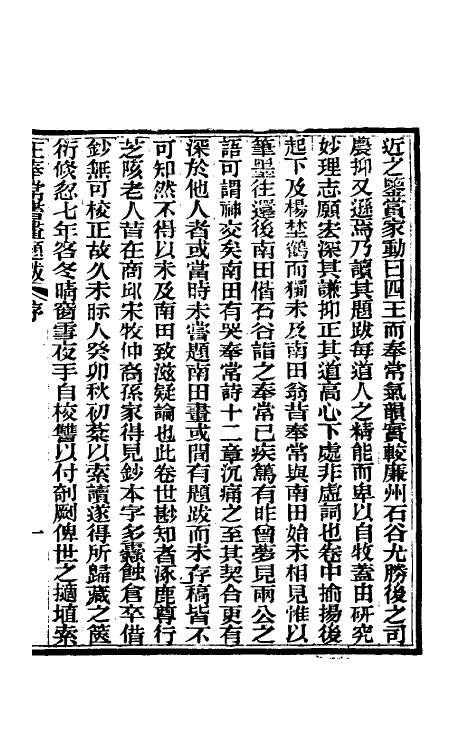 近之鑒賞家動曰四王而奉常氣韻實較廉州石谷尤勝後之司
農抑又遜焉乃讀其題跋每道人之精能而卑以自牧蓋由研究
妙理志願宏深其謙抑正其道高心下處非虛詞也卷中揄揚後
起下及楊埜鶴而獨未及南田翁昔奉常與南田始未相見惟以
筆墨往還後南田偕石谷詣之奉常已疾篤有昨曾夢見兩公之
語可謂神交矣南田有哭奉常詩十二章沉痛之至其契合更有
深於他人者或當時未嘗題南田畫或間有題跋而未存稿皆不
可知然不得以未及南田致滋疑論也此卷世尠知者涿鹿尊行
芝陔老人昔在商邱宋牧仲裔孫家得見鈔本字多蠹蝕倉卒借
鈔無可校正故久未眎人癸卯秋初棻以索讀遂得所歸藏之篋
衍倏忽七年客冬晴窗雪夜手自校讐以付剞劂俾世之擿埴索
王奉常書畫題跋 序 一